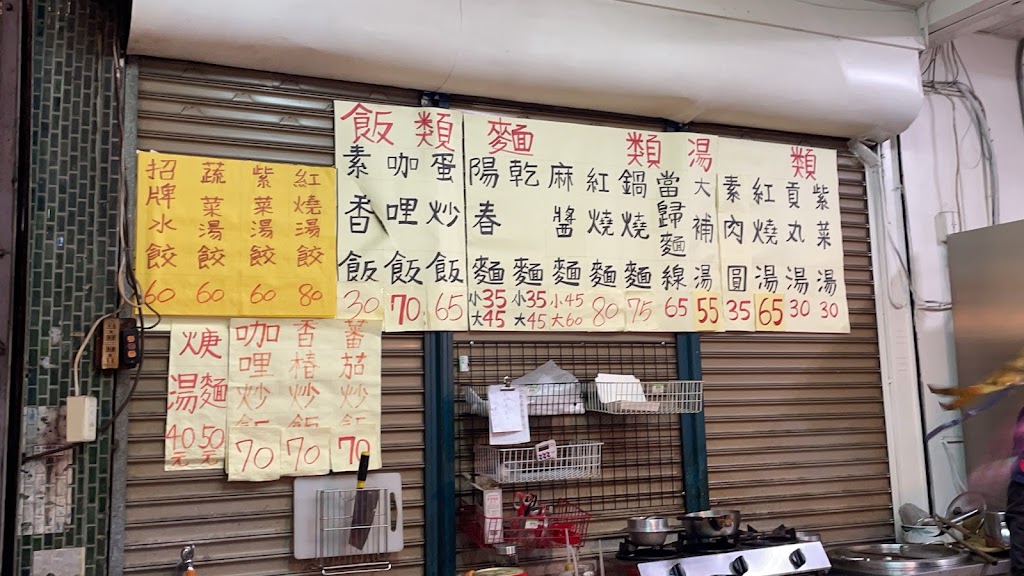 招牌水餃 60
蔬菜湯餃 60
紫菜湯餃 60
紅燒湯餃 80
飯類
素香飯 30
咖哩飯 70
蛋炒飯 65
麵類
陽春麵 小35 大45
乾麵 小35 大45
麻醬麵 小45 大60
紅燒麵 80
鍋燒麵 75
當歸麵線 65
湯類
大補湯 55
素肉圓 35
紅燒湯 65
貢丸湯 30
紫菜湯 30
焿
湯 40元
麵 50元
咖哩炒飯 70
香椿炒飯 70
蕃茄炒飯 70